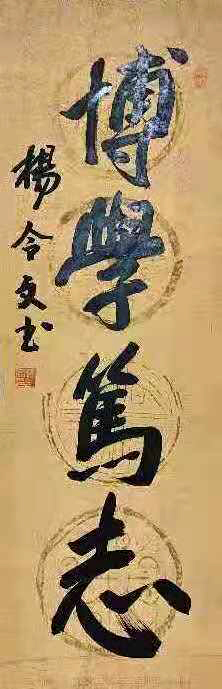 博學篤志
楊令文书